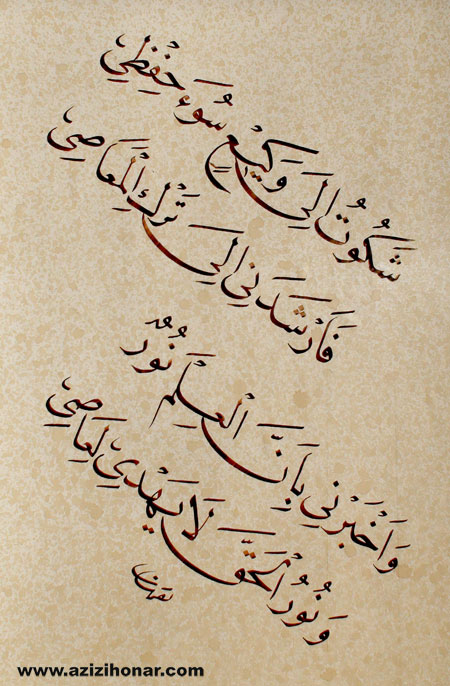 شَكَوتُ اِلَى وَكيْعٍ سُوءَ حِفْظِي
فَاَرْشَدَنِي اِلَى تَرْكِ الْمَعَاصِي
وَاَخْبَرَنِي بِاَنَّ الْعِلْمَ نُورٌ
وَنُورُ الْحَقَّ لَا يَهْدِي لِعَاصِي
www.azizihonar.com